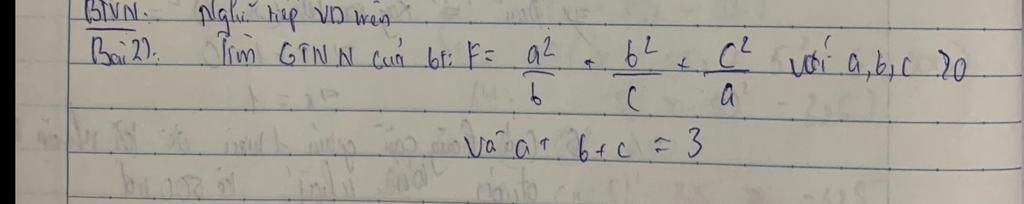 BTVN: Nghĩ tiếp VD trên
Bài 2): Tìm GTNN của bt: F = a²/b + b²/c + c²/a với a, b, c >0
và a + b + c = 3